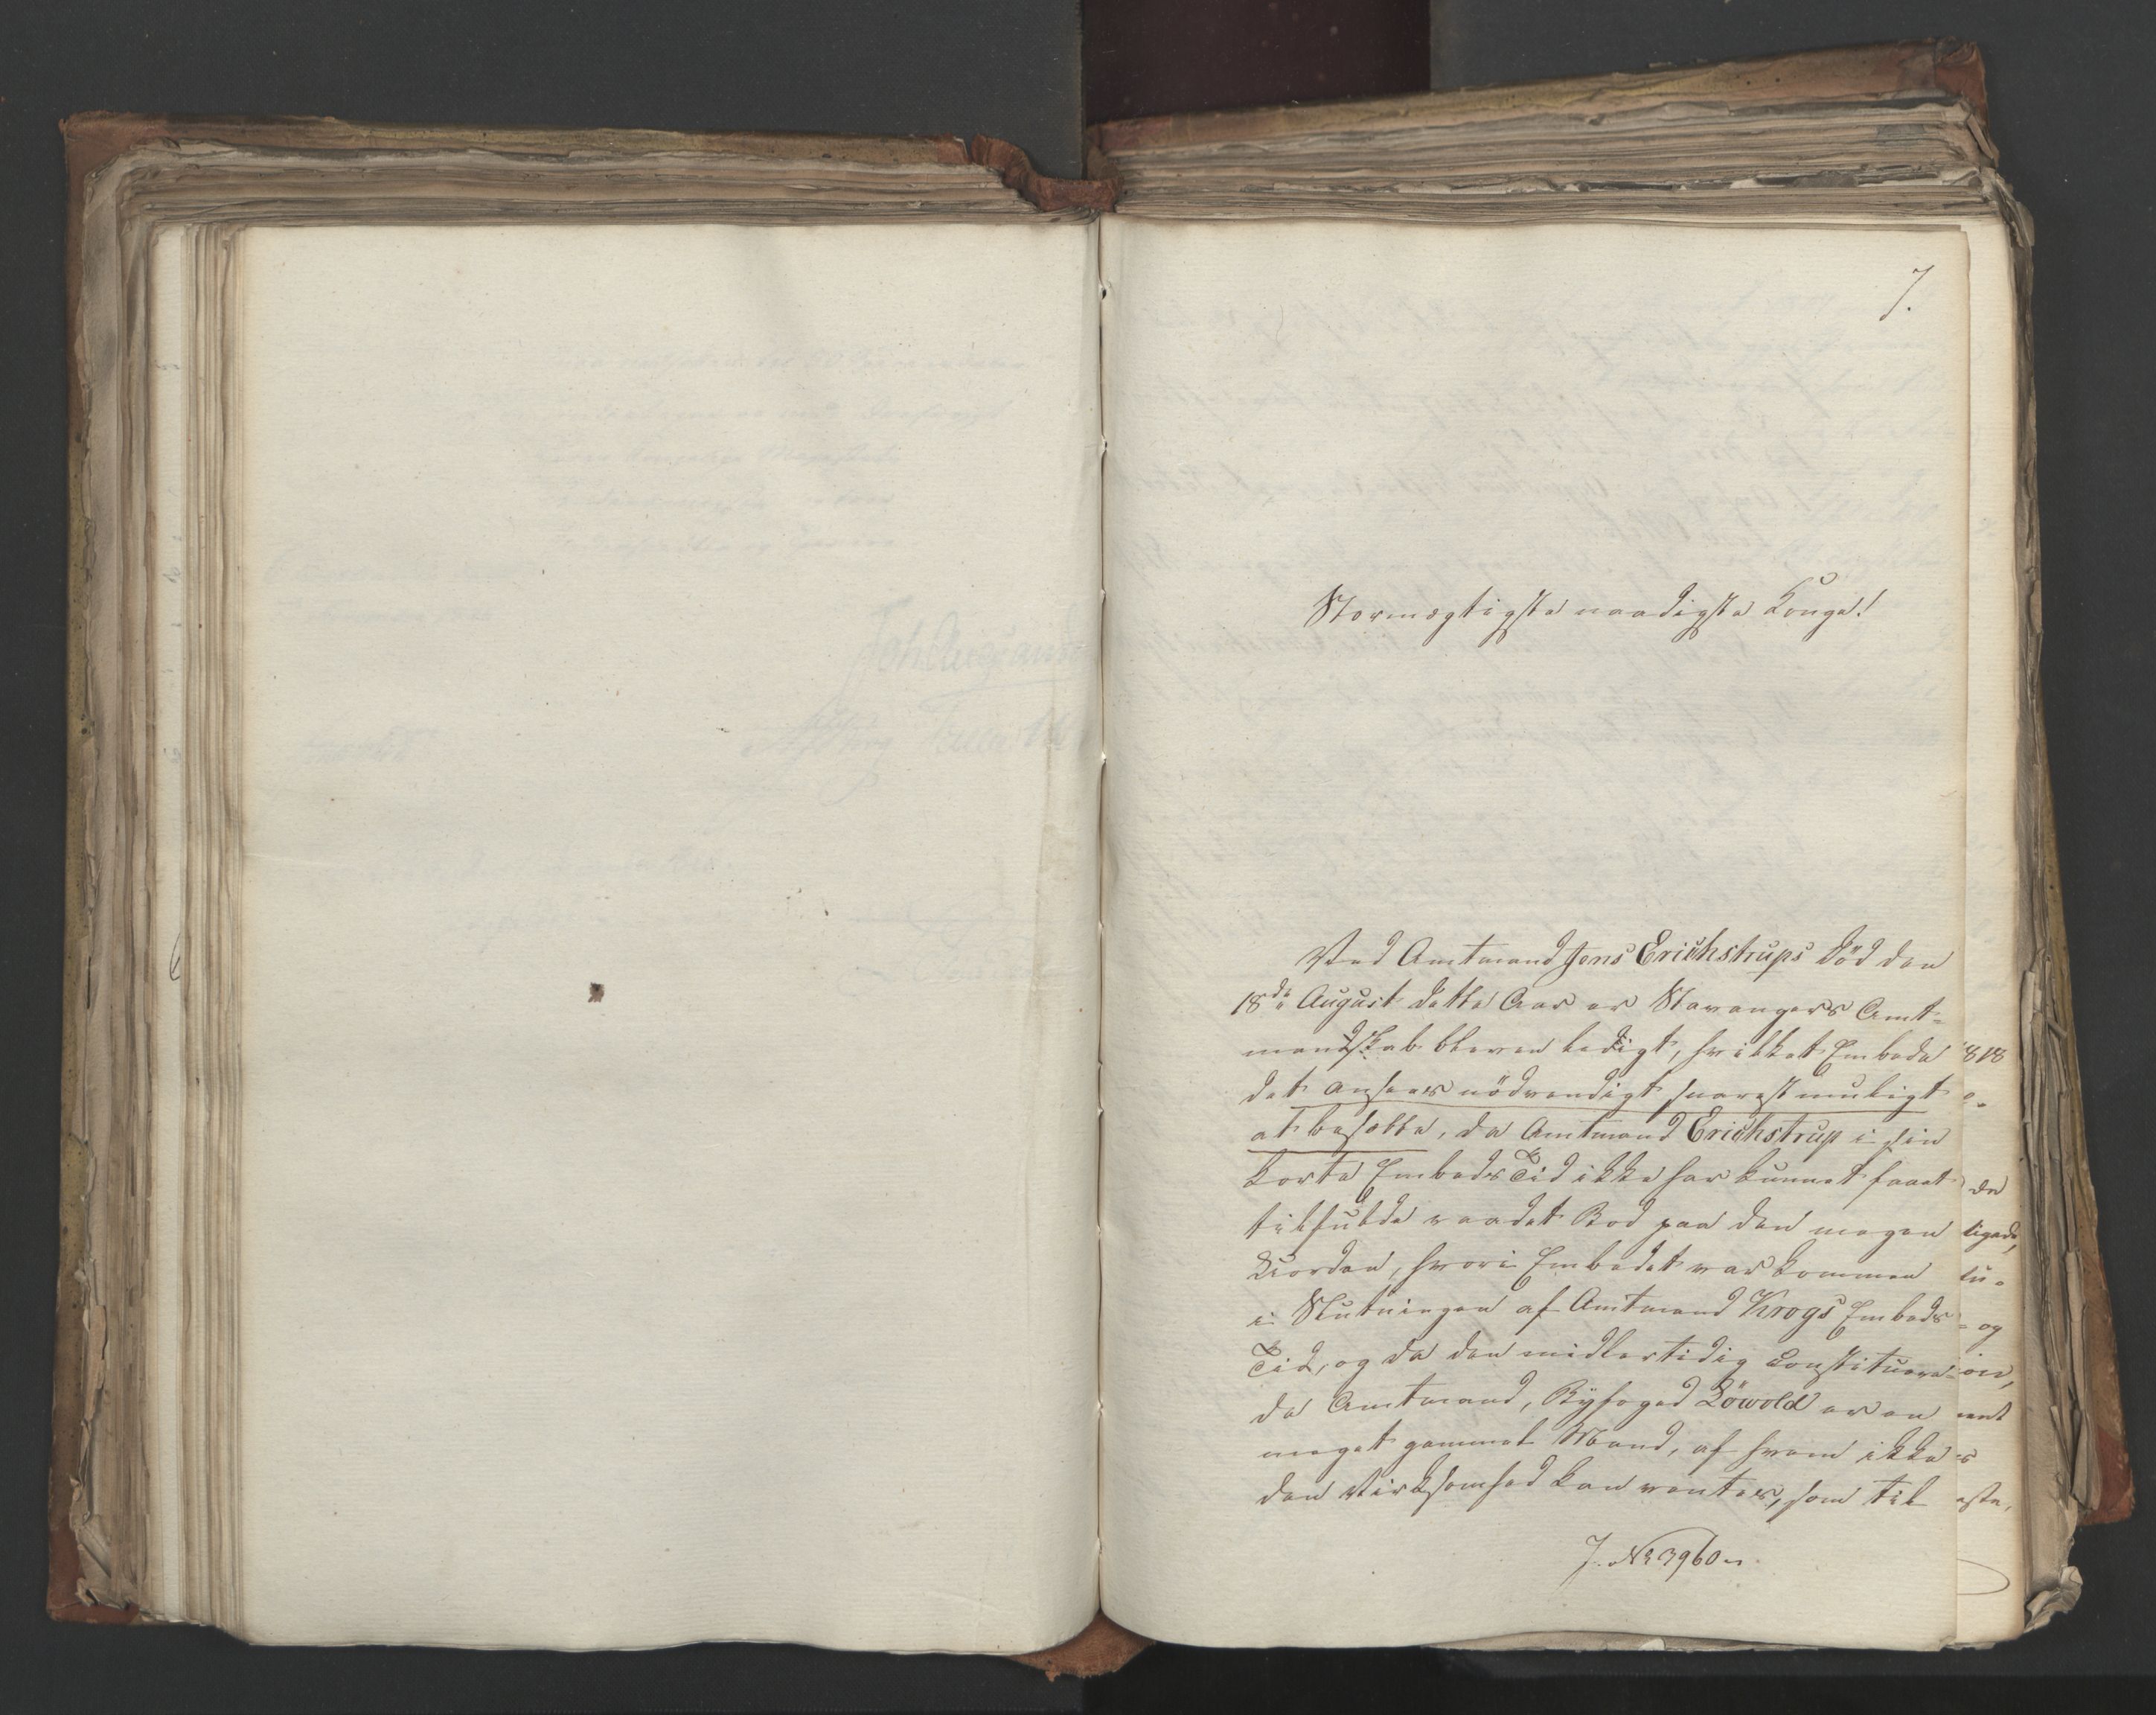 7.
Stormægtigste naadigste Konge!
Ved Amtmand Jens Erichstrups Död den
18de August dette Aar er Stavangers Amt-
mandskab bleven ledigt, hvilket Embede
det ansees nödvendigt snarest muligt
at besætte, da Amtmand Erichstrup i sin
korte Embeds Tid ikke har kunnet faaet
tilfulde raadet Bod paa den megen
Uorden, hvori Embedet var kommen
i Slutningen af Amtmand Krogs Embeds
Tid, og da den midlertidig Constituere-
de Amtmand, Byfoged Löwold er en
meget gammel Mand, af hvem ikke
den Virksomhed kan ventes, som til
J. No 3960
1818
da
ligede,
tu-
og
on,
ment